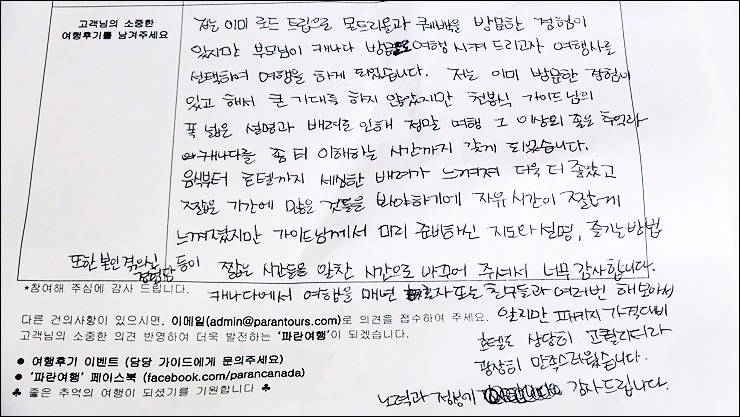 고객님의 소중한
여행후기를 남겨주세요
저는 이미 로드 트립으로 몬트리올과 퀘백을 방문한 경험이
있지만 부모님이 캐나다 방문 여행 시켜 드리고자 여행사를
선택하여 여행을 하게 되었습니다. 저는 이미 방문한 경험이
있고 해서 큰 기대를 하지 않았지만 천봉식 가이드님의
폭 넓은 설명과 배려로 인해 정말 여행 그 이상의 좋은 추억과
캐나다를 좀 더 이해하는 시간까지 갖게 되었습니다.
음식부터 호텔까지 세심한 배려가 느껴져 더욱 더 좋았고
짧은 기간에 많은 것들을 봐야하기에 자유 시간이 짧게
느껴졌지만 가이드님께서 미리 준비하신 지도와 설명, 즐기는 방법
또한 본인 겪으신
경험담 등이 짧은 시간들을 알찬 시간으로 바꾸어 주셔서 너무 감사합니다.
*참여해 주심에 감사 드립니다.
캐나다에서 여행을 매년 혼자 또는 친구들과 여러번 해보아서
알지만 패키지 가격대비
호텔도 상당히 고퀄리티라
굉장히 만족스러웠습니다.
노력과 정성이 감사드립니다.
다른 건의사항이 있으시면, 이메일(admin@parantours.com)로 의견을 접수하여 주세요.
고객님의 소중한 의견 반영하여 더욱 발전하는 '파란여행'이 되겠습니다.
● 여행후기 이벤트 (담당 가이드에게 문의주세요)
● '파란여행' 페이스북 (facebook.com/parancanada)
♣ 좋은 추억의 여행이 되셨기를 기원합니다 ♣